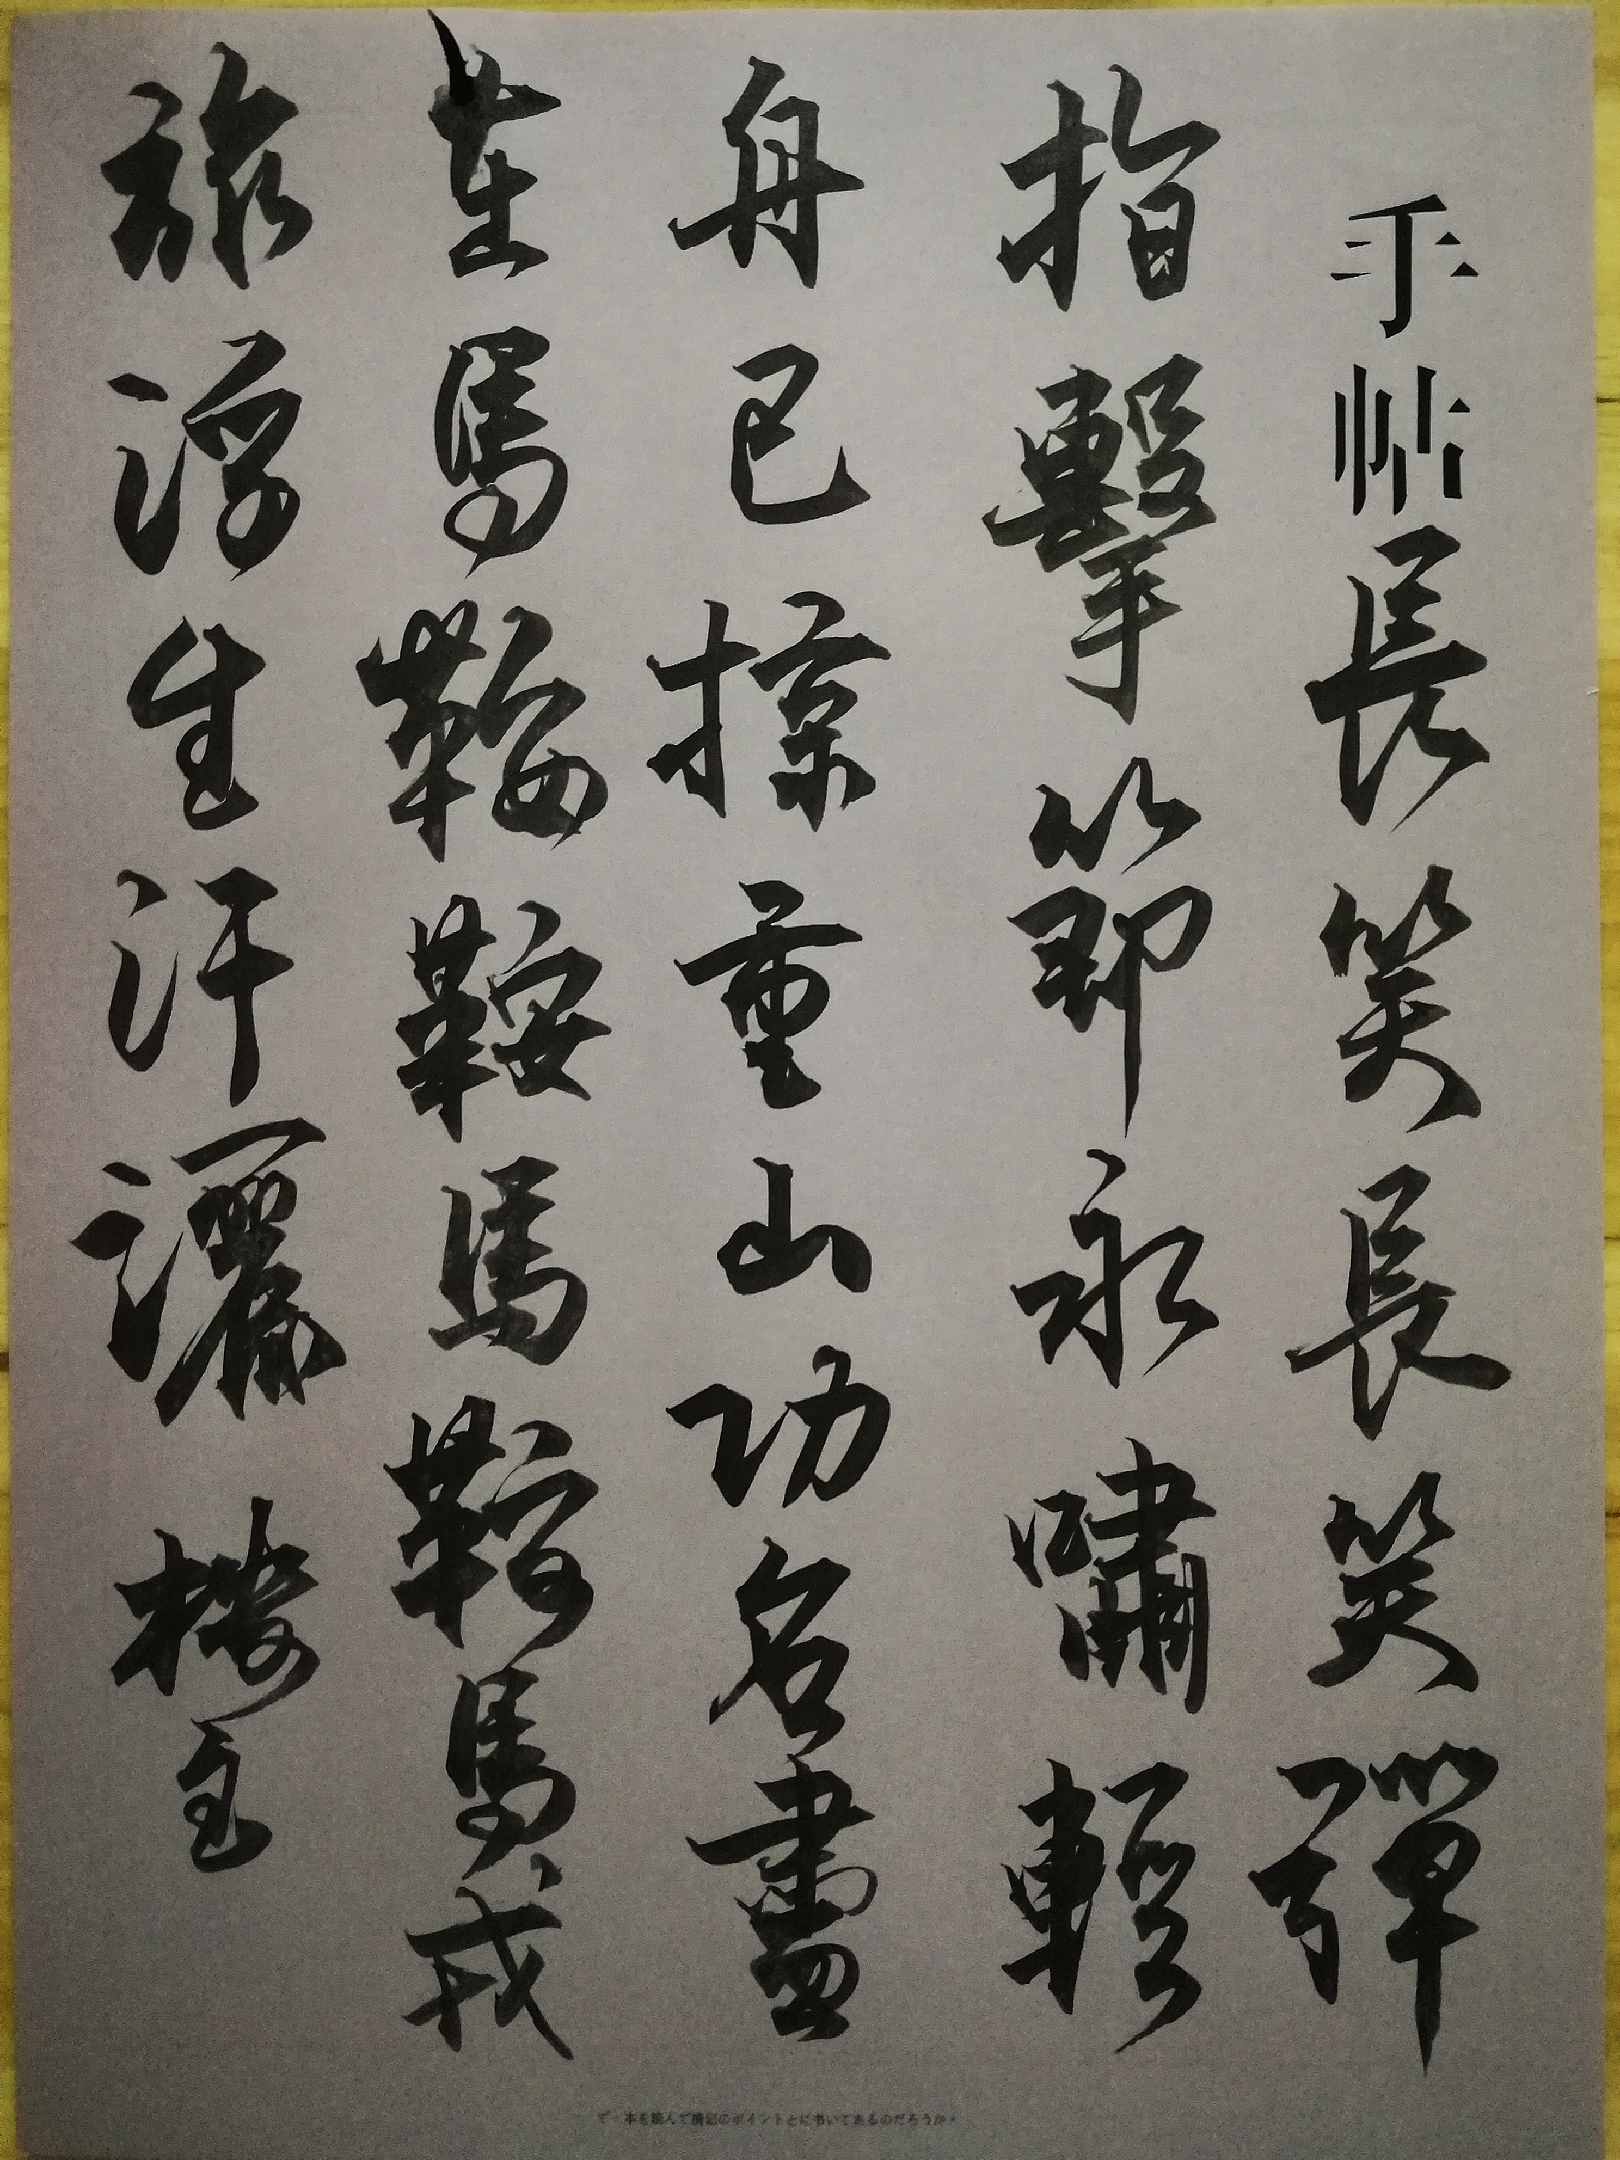 手帖長笑長笑彈
指擊節永嘯輕
舟已掠重山功名盡
在馬鞍鞍馬鞍馬戎
旅浮生汗灑楼主
で、本を読んで暗記のポイントとに書いてあるのだろうか。